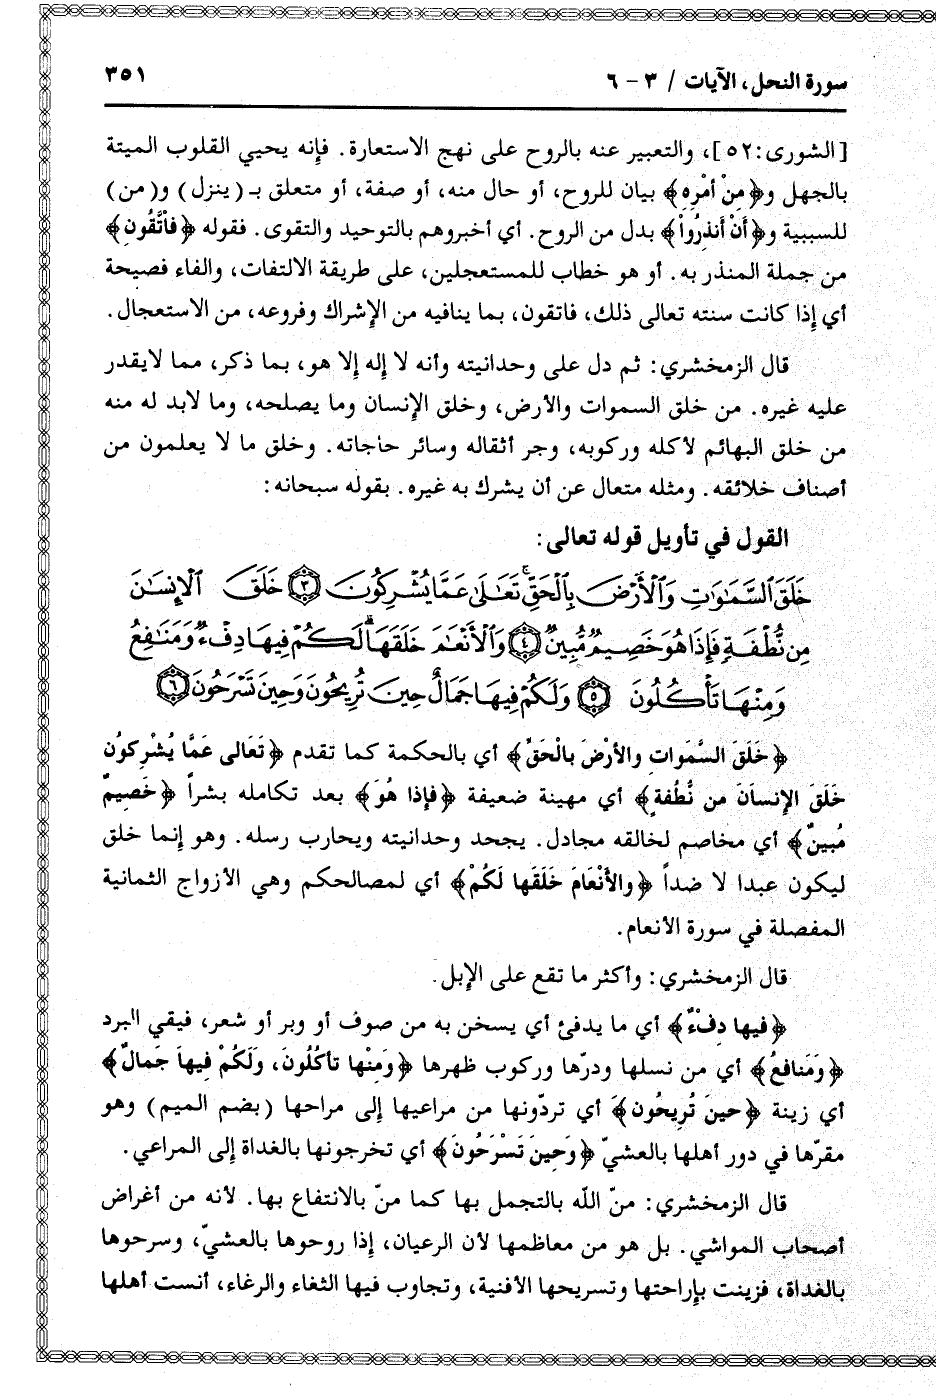 سورة النحل، الآيات / ٣ - ٦
٣٥١
[الشورى:٥٢]، والتعبير عنه بالروح على نهج الاستعارة. فإنه يحيي القلوب الميتة
بالجهل و﴿مِنْ أمْرِهِ﴾ بيان للروح، أو حال منه، أو صفة، أو متعلق بـ (ينزل) و(من)
للسببية و﴿أَنْ أَنذِرُواْ﴾ بدل من الروح. أي أخبروهم بالتوحيد والتقوى. فقوله ﴿فَاتَّقُونِ﴾
من جملة المنذر به. أو هو خطاب للمستعجلين، على طريقة الالتفات، والفاء فصيحة
أي إذا كانت سنته تعالى ذلك، فاتقون، بما ينافيه من الإشراك وفروعه، من الاستعجال.
قال الزمخشري: ثم دل على وحدانيته وأنه لا إله إلا هو، بما ذكر، مما لايقدر
عليه غيره. من خلق السموات والأرض، وخلق الإنسان وما يصلحه، وما لابد له منه
من خلق البهائم لأكله وركوبه، وجر أثقاله وسائر حاجاته. وخلق ما لا يعلمون من
أصناف خلائقه. ومثله متعال عن أن يشرك به غيره. بقوله سبحانه:
القول في تأويل قوله تعالى:
خَلَقَ ٱلسَّمَـٰوَٰتِ وَٱلْأَرْضَ بِٱلْحَقِّ ۚ تَعَـٰلَىٰ عَمَّا يُشْرِكُونَ ٣ خَلَقَ ٱلْإِنسَـٰنَ
مِن نُّطْفَةٍ فَإِذَا هُوَ خَصِيمٌ مُّبِينٌ ٤ وَٱلْأَنْعَـٰمَ خَلَقَهَا ۗ لَكُمْ فِيهَا دِفْءٌ وَمَنَـٰفِعُ
وَمِنْهَا تَأْكُلُونَ ٥ وَلَكُمْ فِيهَا جَمَالٌ حِينَ تُرِيحُونَ وَحِينَ تَسْرَحُونَ ٦
﴿خَلَقَ السَّمَوات والأرْضَ بالْحَقِّ﴾ أي بالحكمة كما تقدم ﴿تَعَالى عَمَّا يُشْرِكُونَ
خَلَقَ الإنسَانَ من نُّطْفةٍ﴾ أي مهينة ضعيفة ﴿فإذا هُوَ﴾ بعد تكامله بشراً ﴿خَصيمٌ
مُبينٌ﴾ أي مخاصم لخالقه مجادل. يجحد وحدانيته ويحارب رسله. وهو إنما خلق
ليكون عبدا لا ضداً ﴿والأنْعَامَ خَلَقَها لَكُمْ﴾ أي لمصالحكم وهي الأزواج الثمانية
المفصلة في سورة الأنعام.
قال الزمخشري: وأكثر ما تقع على الإبل.
﴿فيها دِفْءٌ﴾ أي ما يدفئ أي يسخن به من صوف أو وبر أو شعر، فيقي البرد
﴿وَمَنافعُ﴾ أي من نسلها ودرّها وركوب ظهرها ﴿وَمِنْها تأكُلُونَ، وَلَكُمْ فِيهاَ جَمالٌ﴾
أي زينة ﴿حينَ تُرِيحُون﴾ أي تردّونها من مراعيها إلى مراحها (بضم الميم) وهو
مقرّها في دور أهلها بالعشيّ ﴿وَحِينَ تَسْرَحُونَ﴾ أي تخرجونها بالغداة إلى المراعي.
قال الزمخشري: منّ الله بالتجمل بها كما منّ بالانتفاع بها. لأنه من أغراض
أصحاب المواشي. بل هو من معاظمها لأن الرعيان، إذا روحوها بالعشيّ، وسرحوها
بالغداة، فزينت بإراحتها وتسريحها الأفنية، وتجاوب فيها الثغاء والرغاء، أنست أهلها